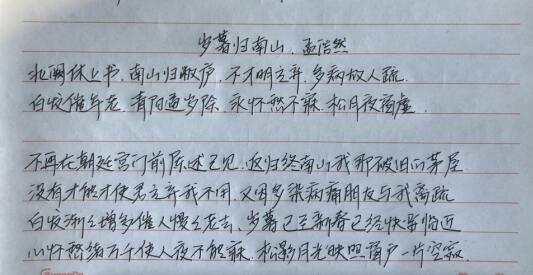 岁暮归南山.孟浩然
北阙休上书.南山归敝庐.不才明主弃.多病故人疏.
白发催年老.青阳逼岁除.永怀愁不寐.松月夜窗虚.
不再在朝廷宫门前陈述己见.返归终南山我那破旧的茅屋
没有才能才使君主弃我不用.又因多染病痛朋友与我离疏
白发渐渐增多催人慢慢老去.岁暮已至新春已经快要临近
心怀愁绪万千使人夜不能寐.松影月光映照窗户一片空寂.